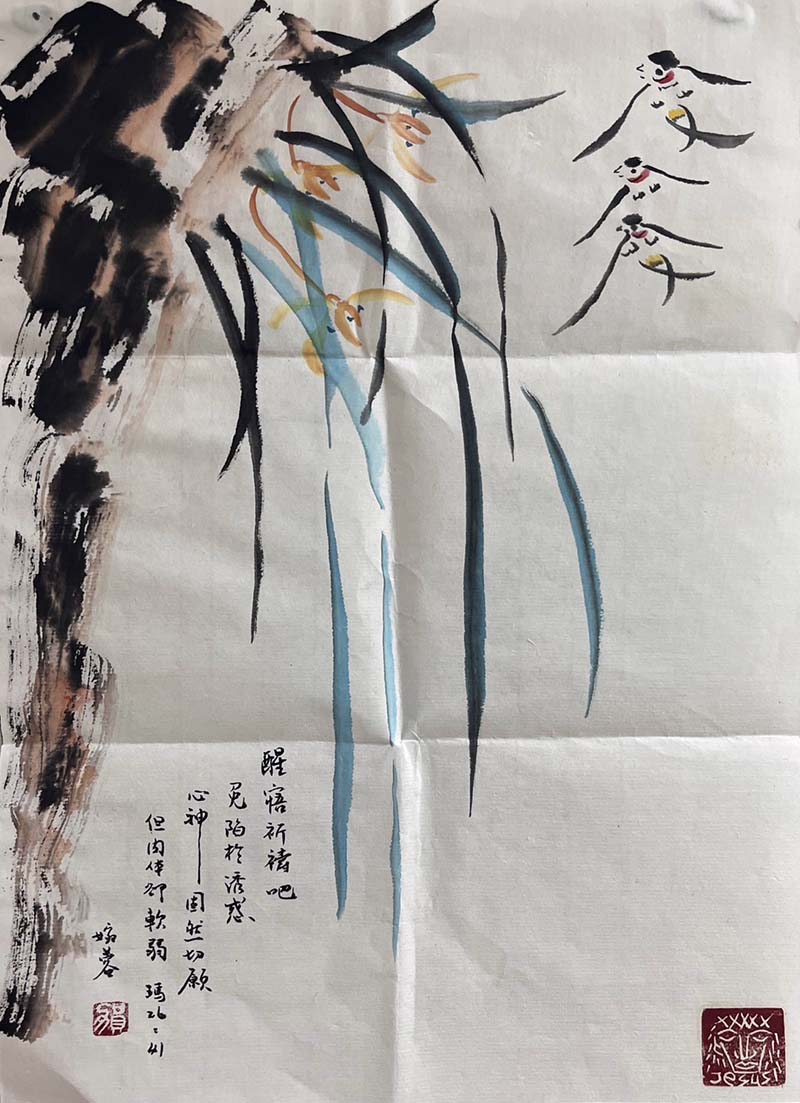 醒寤祈禱吧
免陷於誘惑、
心神——固然切願
但肉体卻軟弱 瑪26:41
Jesus